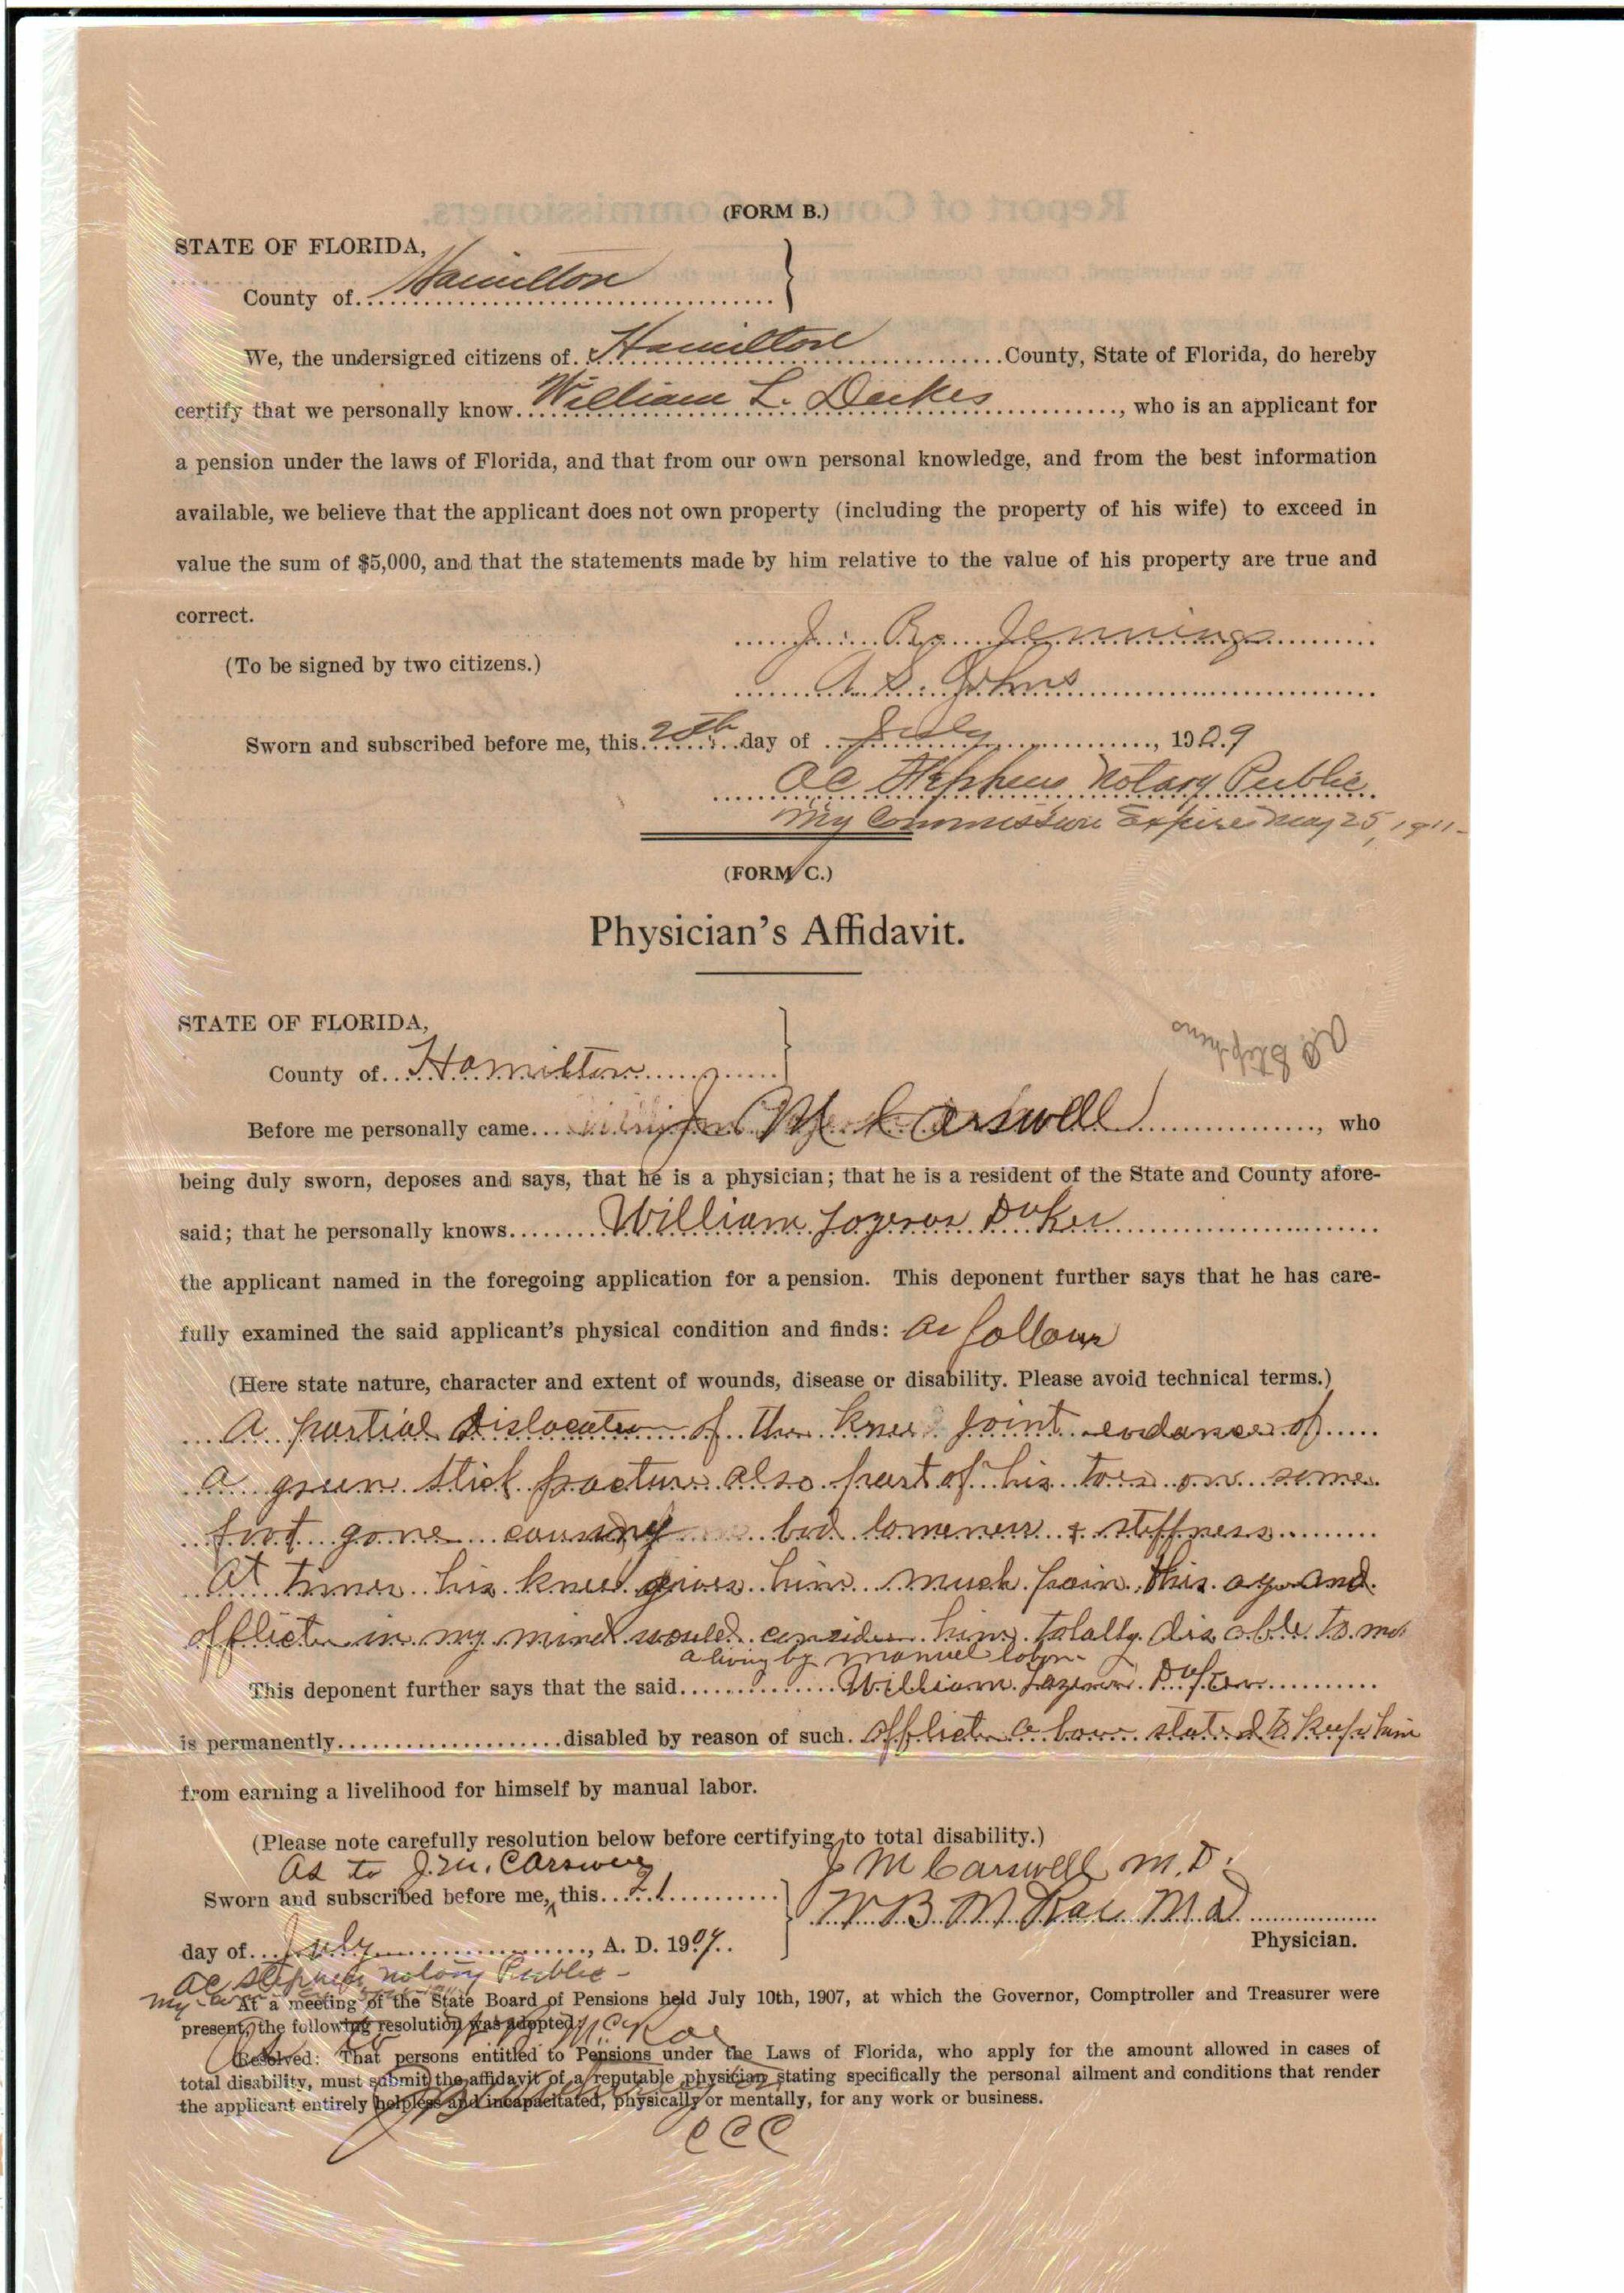 (FORM B.)
STATE OF FLORIDA,
County of Hamilton
We, the undersigned citizens of Hamilton County, State of Florida, do hereby
certify that we personally know William L. Dukes, who is an applicant for
a pension under the laws of Florida, and that from our own personal knowledge, and from the best information
available, we believe that the applicant does not own property (including the property of his wife) to exceed in
value the sum of $5,000, and that the statements made by him relative to the value of his property are true and
correct.
J. R. Jennings
(To be signed by two citizens.)
A. S. Johns
Sworn and subscribed before me, this 20th day of July, 1909
AC Stephens Notary Public
My Commission Expires May 25, 1911
(FORM C.)
Physician's Affidavit.
STATE OF FLORIDA,
AC Stephens
County of Hamilton
Before me personally came J M Carswell, who
being duly sworn, deposes and says, that he is a physician; that he is a resident of the State and County afore-
said; that he personally knows William Dukes
the applicant named in the foregoing application for a pension. This deponent further says that he has care-
fully examined the said applicant's physical condition and finds: as follows
(Here state nature, character and extent of wounds, disease or disability. Please avoid technical terms.)
A partial dislocation of the knee joint evdance of
a green stick fracture also part of his toes on same
foot gone causing bad lameness & stiffness
At times his knee gives him much pain this age and
afflictn in my mind would consider him totally disable to
a living by manuel labor
This deponent further says that the said William
is permanently disabled by reason of such afflictn above stated to keep him
from earning a livelihood for himself by manual labor.
(Please note carefully resolution below before certifying to total disability.)
As to J. M. Carswell
J M Carswell M.D.
Sworn and subscribed before me, this 21
W B McRae M D
day of July, A. D. 1909.
Physician.
AC Stephens Notary Public
My
At a meeting of the State Board of Pensions held July 10th, 1907, at which the Governor, Comptroller and Treasurer were
present, the following resolution was adopted:
McRae
Resolved: That persons entitled to Pensions under the Laws of Florida, who apply for the amount allowed in cases of
total disability, must submit the affidavit of a reputable physician stating specifically the personal ailment and conditions that render
the applicant entirely helpless and incapacitated, physically or mentally, for any work or business.
CCC